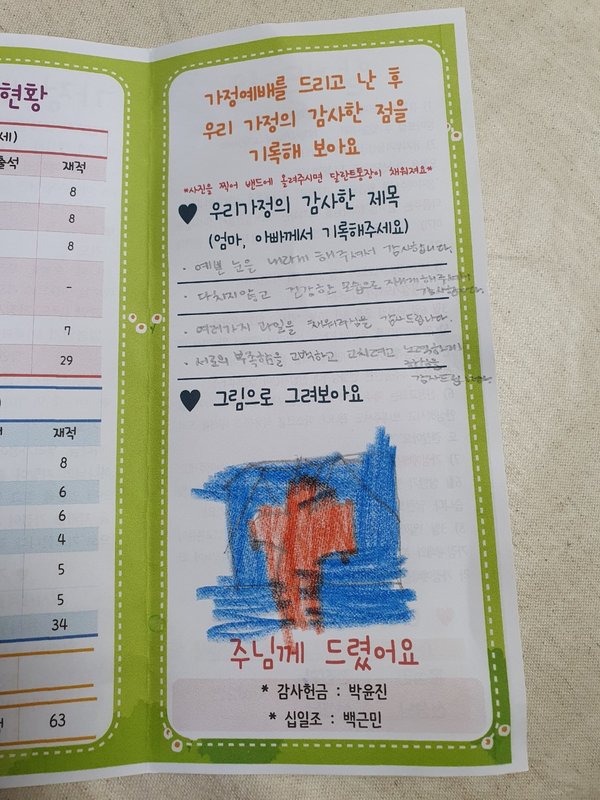 현황
세)
출석
재적
8
8
8
-
7
29
재적
8
6
6
4
5
5
34
63
가정예배를 드리고 난 후
우리 가정의 감사한 점을
기록해 보아요
*사진을 찍어 밴드에 올려주시면 달란트통장이 채워져요*
♥ 우리가정의 감사한 제목
(엄마, 아빠께서 기록해주세요)
· 예쁜 눈을 내리게 해주셔서 감사합니다.
· 다치지않고 건강한 모습으로 자라게해주셔서
감사합니다.
· 여러가지 과일을 감사드립니다.
· 서로의 부족함을 고백하고 고치려고 노력하게
감사드립니다.
♥ 그림으로 그려보아요
주님께 드렸어요
* 감사헌금 : 박윤진
* 십일조 : 백근민